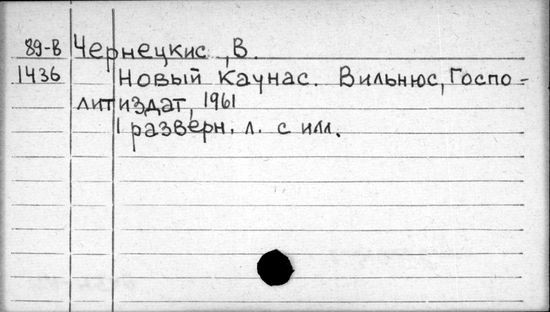 89-В Чернецкис, В.
1436 Новый Каунас. Вильнюс, Госпо-
литиздат, 1961
1 разверн. л. с илл.